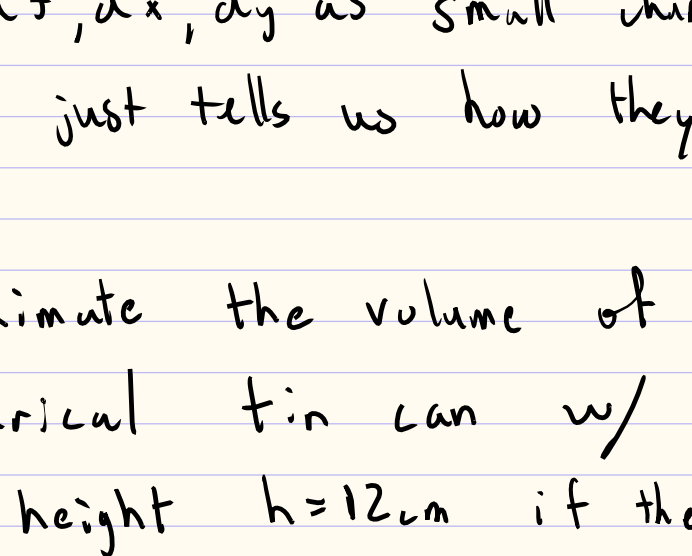 , dx, dy as small
just tells us how they
imate the volume of
rical tin can w/
height h = 12cm if the